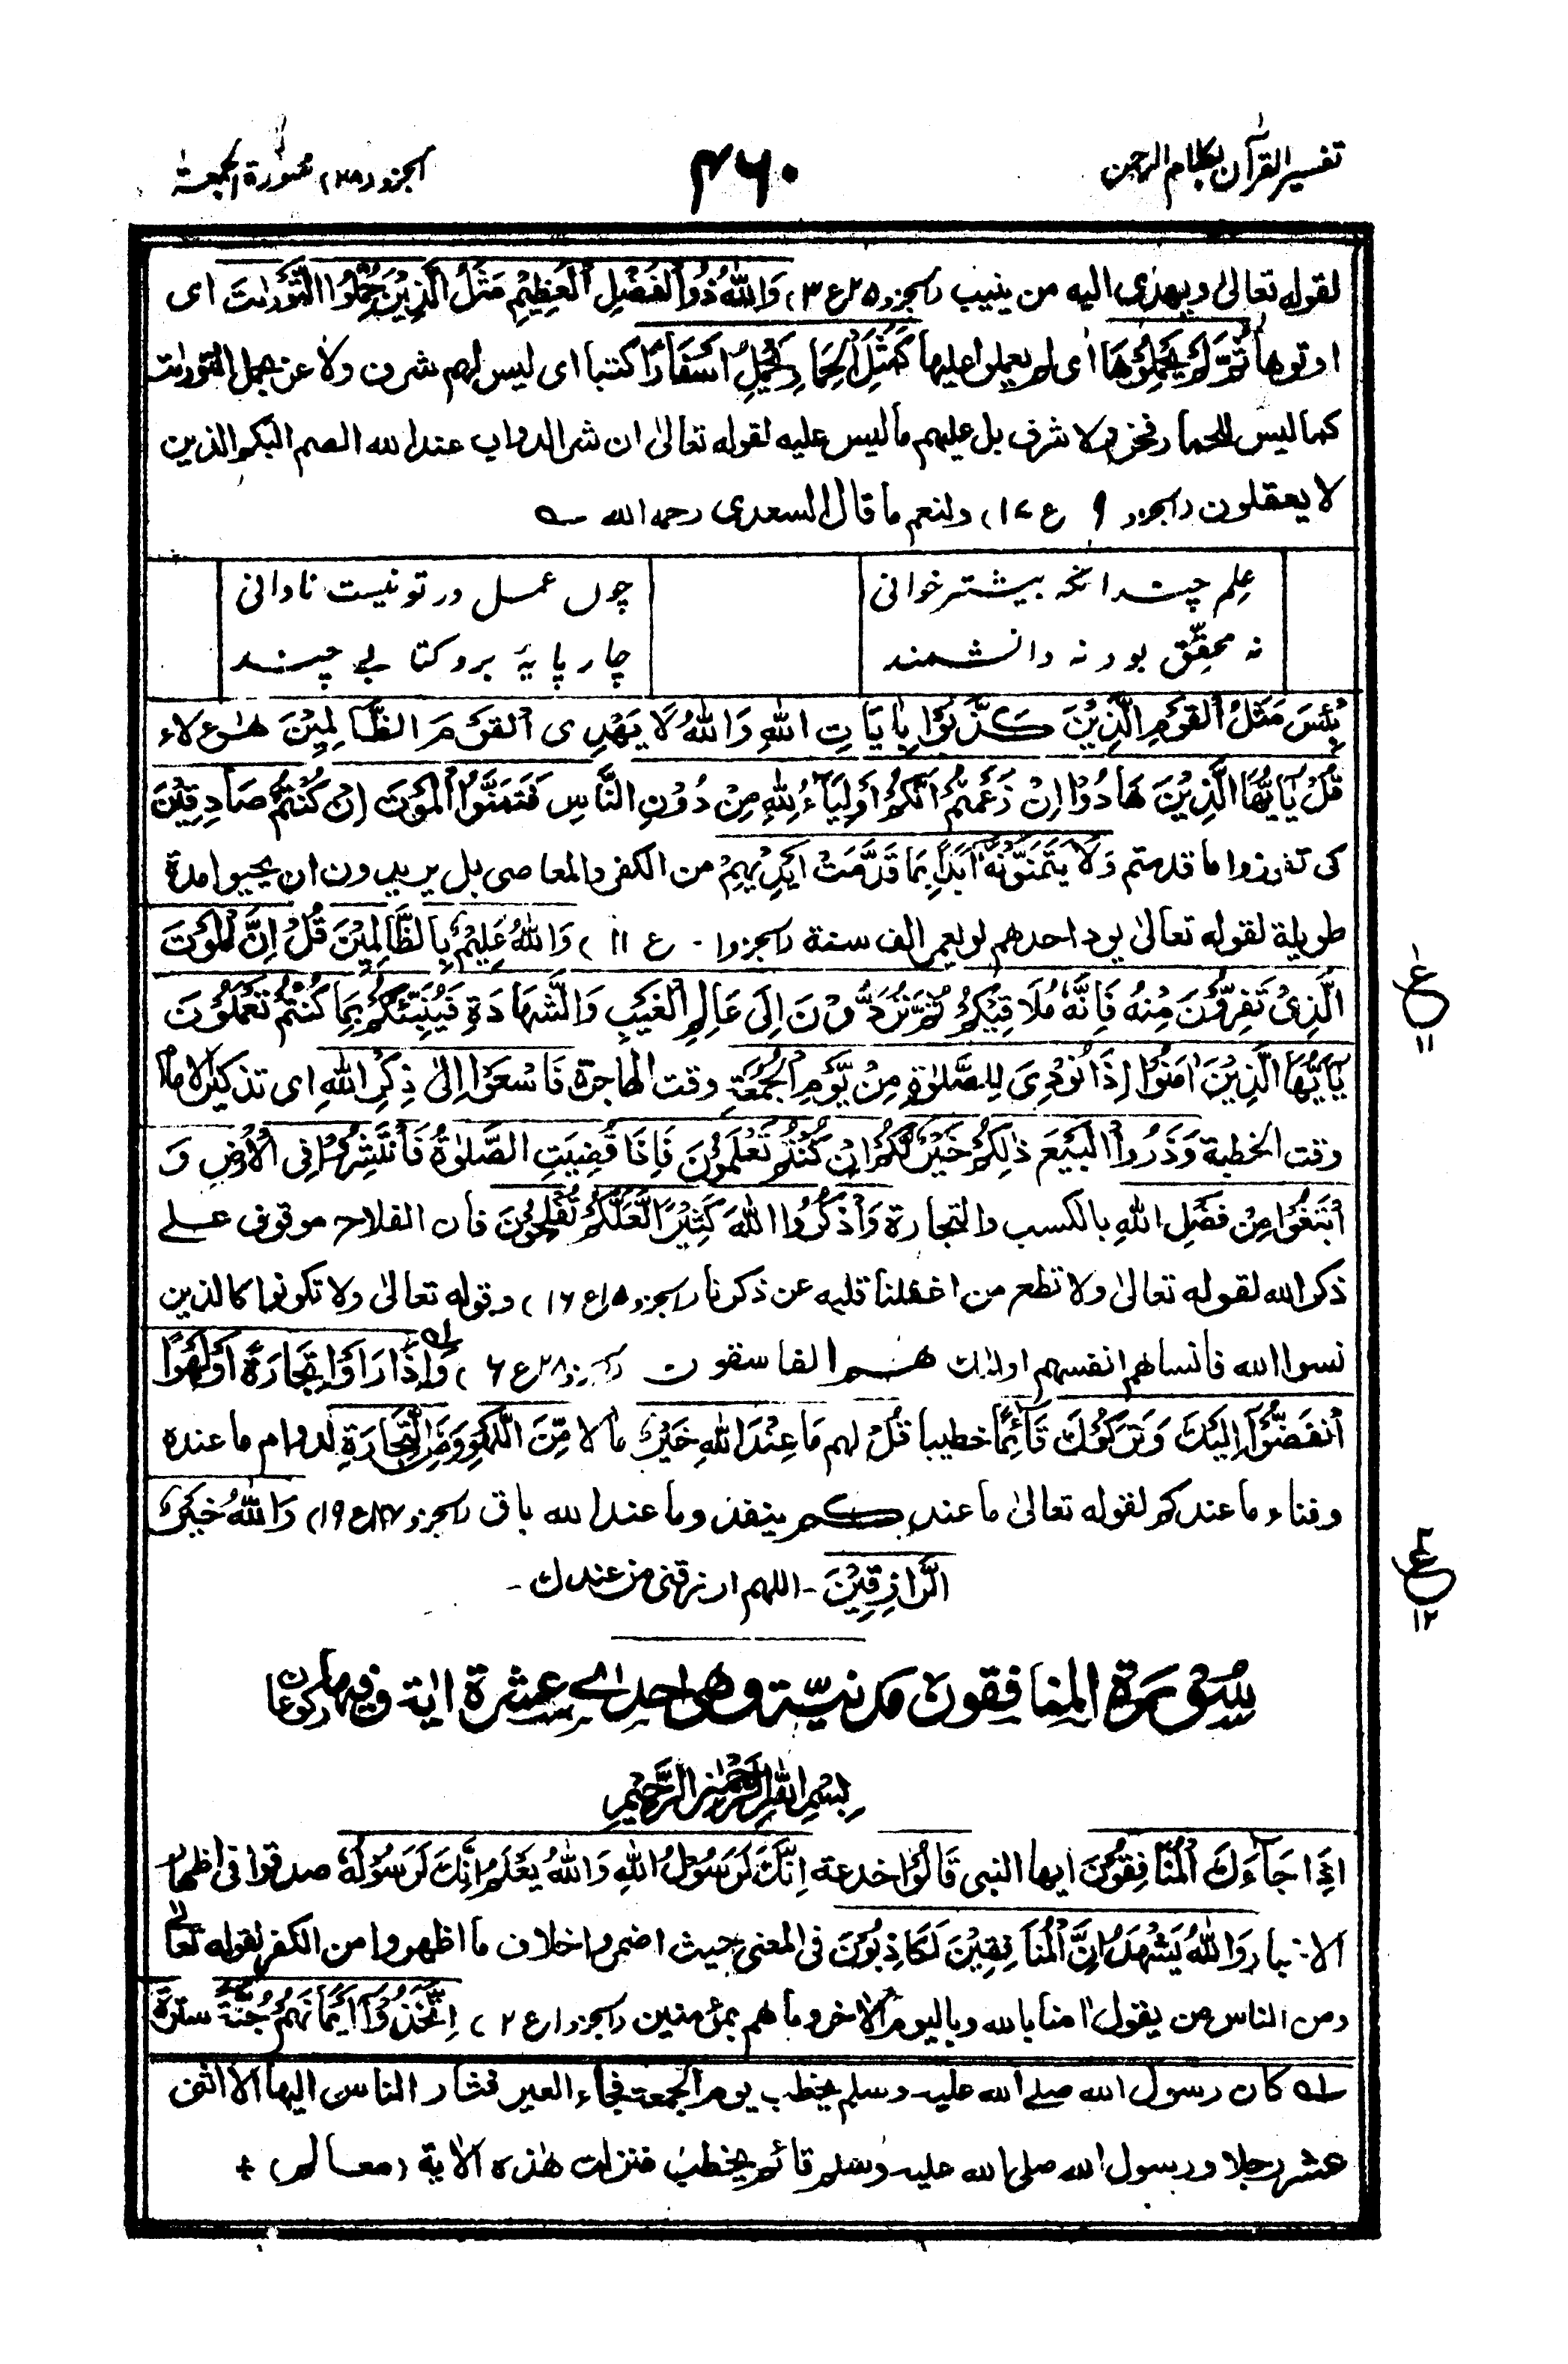 تفسیر القرآن بکلام الرحمن
۴۶۰
الجزو (۲۸) سورة الجمعة
لقوله تعالیٰ ویهدی الیه من ینیب (الجزو ۲۵ ع ۳) وَاللّٰهُ ذُو الْفَضْلِ الْعَظِیْمِ مَثَلُ الَّذِیْنَ حُمِّلُوا التَّوْرٰىتَ ای
اوتوها ثُمَّ لَمْ یَحْمِلُوْهَا ای لم یعملوا علیها کَمَثَلِ الْحِمَارِ یَحْمِلُ اَسْفَارًا کتبا ای لیس لهم شرف ولا عز بحمل التورات
کما لیس للحمار فخر ولا شرف بل علیهم ما لیس علیه لقوله تعالیٰ ان شر الدواب عند الله الصم البکم الذین
لا یعقلون (الجزو ۹ ع ۱۷) ولنعم ما قال السعدی رحمه الله ؎
علم چندانکه بیشتر خوانی
چوں عمل در تو نیست نادانی
نه محقّق بود نه دانشمند
چار پایۂ برو کتابے چند
بِئْسَ مَثَلُ الْقَوْمِ الَّذِیْنَ کَذَّبُوْا بِاٰیَاتِ اللّٰهِ وَاللّٰهُ لَا یَهْدِی الْقَوْمَ الظَّالِمِیْنَ هٰؤلاء
قُلْ یٰاَیُّهَا الَّذِیْنَ هَادُوْا اِنْ زَعَمْتُمْ اَنَّکُمْ اَوْلِیَآءُ لِلّٰهِ مِنْ دُوْنِ النَّاسِ فَتَمَنَّوُا الْمَوْتَ اِنْ کُنْتُمْ صَادِقِیْنَ
کی تفوزوا ما قدمتم وَلَا یَتَمَنَّوْنَهٗ اَبَدًا بِمَا قَدَّمَتْ اَیْدِیْهِمْ من الکفر والمعاصی بل یریدون ان یحیوا مدة
طویلة لقوله تعالیٰ یود احدهم لو یعمر الف سنة (الجزو ۱۰ ع ۱۱) وَاللّٰهُ عَلِیْمٌ بِالظَّالِمِیْنَ قُلْ اِنَّ الْمَوْتَ
الَّذِیْ تَفِرُّوْنَ مِنْهُ فَاِنَّهٗ مُلَاقِیْکُمْ ثُمَّ تُرَدُّوْنَ اِلَی عَالِمِ الْغَیْبِ وَالشَّهَادَةِ فَیُنَبِّئُکُمْ بِمَا کُنْتُمْ تَعْمَلُوْنَ
ع
۱۱
یٰاَیُّهَا الَّذِیْنَ اٰمَنُوْا اِذَا نُوْدِیَ لِلصَّلٰوةِ مِنْ یَّوْمِ الْجُمُعَةِ وقت الهاجرة فَاسْعَوْا اِلیٰ ذِکْرِ اللّٰهِ ای تذکیر الامام
وقت الخطبة وَذَرُوا الْبَیْعَ ذٰلِکُمْ خَیْرٌ لَّکُمْ اِنْ کُنْتُمْ تَعْلَمُوْنَ فَاِذَا قُضِیَتِ الصَّلٰوةُ فَانْتَشِرُوْا فِی الْاَرْضِ وَ
ابْتَغُوْا مِنْ فَضْلِ اللّٰهِ بالکسب والتجارة وَاذْکُرُوا اللّٰهَ کَثِیْرًا لَّعَلَّکُمْ تُفْلِحُوْنَ فان الفلاح موقوف علے
ذکر الله لقوله تعالیٰ ولا تطع من اغفلنا قلبه عن ذکرنا (الجزو ۱۵ ع ۱۶) وقوله تعالیٰ ولا تکونوا کالذین
نسوا الله فانساهم انفسهم اولئک هم الفاسقون (الجزو ۲۸ ع ۶) وَاِذَا رَاَوْا تِجَارَةً اَوْ لَهْوًا
انْفَضُّوْٓا اِلَیْكَ وَتَرَکُوْكَ قَآئِمًا خطیبا قُلْ لهم مَا عِنْدَ اللّٰهِ خَیْرٌ مالا مِّنَ اللَّهْوِ وَمِنَ التِّجَارَةِ لدوام ما عنده
وفناء ما عندکم لقوله تعالیٰ ما عندکم ینفد وما عند الله باق (الجزو ۱۴ ع ۱۹) وَاللّٰهُ خَیْرُ
الرَّازِقِیْنَ - اللهم ارزقنی من عندك -
ع
۱۲
سورة المنافقون مدنیّة وهی احدٰی عشرة اٰیة وفیها رکوعان
بِسْمِ اللّٰهِ الرَّحْمٰنِ الرَّحِیْمِ
اِذَا جَآءَكَ الْمُنَافِقُوْنَ ایها النبی قَالُوْا خدعة اِنَّكَ لَرَسُوْلُ اللّٰهِ وَاللّٰهُ یَعْلَمُ اِنَّكَ لَرَسُوْلُهٗ صدقوا فی اظهار
الاخبار وَاللّٰهُ یَشْهَدُ اِنَّ الْمُنَافِقِیْنَ لَکَاذِبُوْنَ فی المعنی حیث اضمروا خلاف ما اظهروا من الکفر لقوله تعالیٰ
ومن الناس من یقول اٰمنا بالله وبالیوم الاٰخر وما هم بمؤمنین (الجزو ۱ ع ۲) اِتَّخَذُوْٓا اَیْمَانَهُمْ جُنَّةً سترة
له کان رسول الله صلے الله علیه وسلم یخطب یوم الجمعة فجاء العیر فثار الناس الیها الا اثنی
عشر رجلا ورسول الله صلی الله علیه وسلم قائم یخطب فنزلت هٰذه الاٰیة (معالم) +